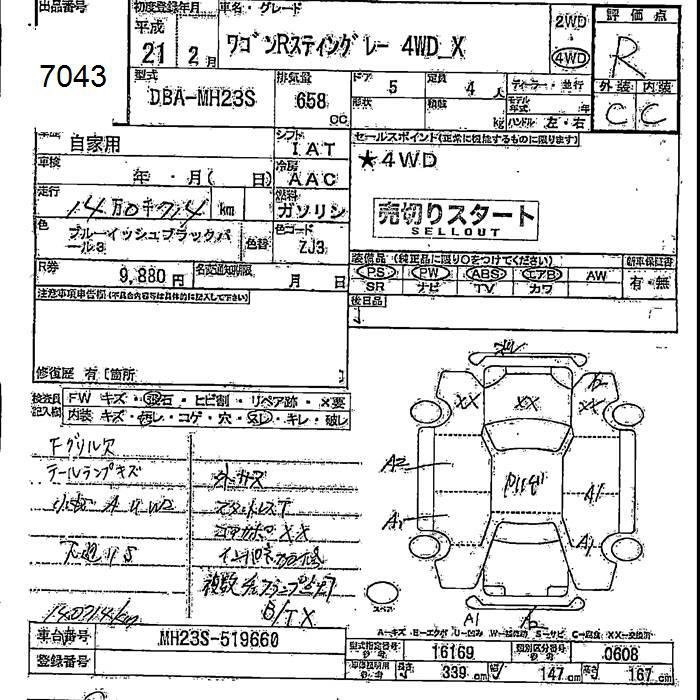 出品番号
7043
初度登録年月
平成
21 2月
車名・グレード
ワゴンRスティングレー 4WD_X
2WD
4WD
評価点
R
外装 内装
C C
型式
DBA-MH23S
排気量
658 cc
ドア
5
定員
4人
形状
積載
kg
ディーラー・並行
モデル年式
年
ハンドル 左・右
自家用
車検
年・月( 日)
走行
14万0千714 km
色
ブルーイッシュブラックパール3
色替
シフト
IAT
冷房
AAC
燃料
ガソリン
色コード
ZJ3
セールスポイント(正常に機能するものに限ります)
★4WD
売切りスタート
SELLOUT
R券
9,880円
名変通知期限
月 日
装備品(純正品に限り○をつけてください)
PS PW ABS エアB AW
SR ナビ TV カワ
新車保証書
有・無
後日品
注意事項申告欄(不具合内容等は具体的に記入して下さい)
修復歴 有〔箇所 〕
検査員記入欄
FW キズ・飛石・ヒビ割・リペア跡・X要
内装 キズ・汚レ・コゲ・穴・スレ・キレ・破レ
Fグリル欠
テールランプキズ
小傷 A U W2
下廻りS
140714km
外キズ
スタッドレスT
コアサポXX
B/TX
XX
XX
XX
A2
A1
A1
A1
A1
スペア
A―キズ E―エクボ U―凹み W―補修跡 S―サビ C―腐食 XX―交換済
車台番号
MH23S-519660
登録番号
型式指定番号
16169
類別区分番号
0608
長さ 339 cm
幅 147 cm
高さ 167 cm